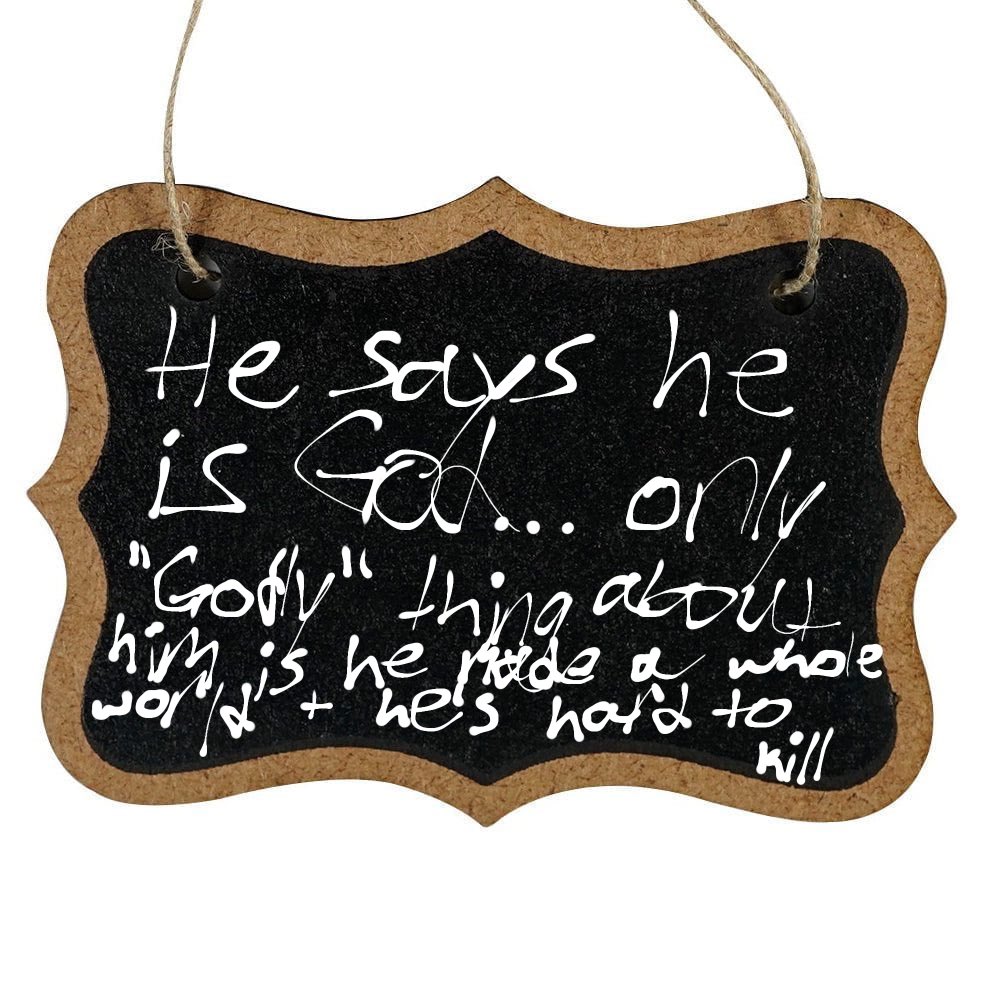 He says he
is God... only
"Godly" thing about
him is he made a whole
world + he's hard to
kill